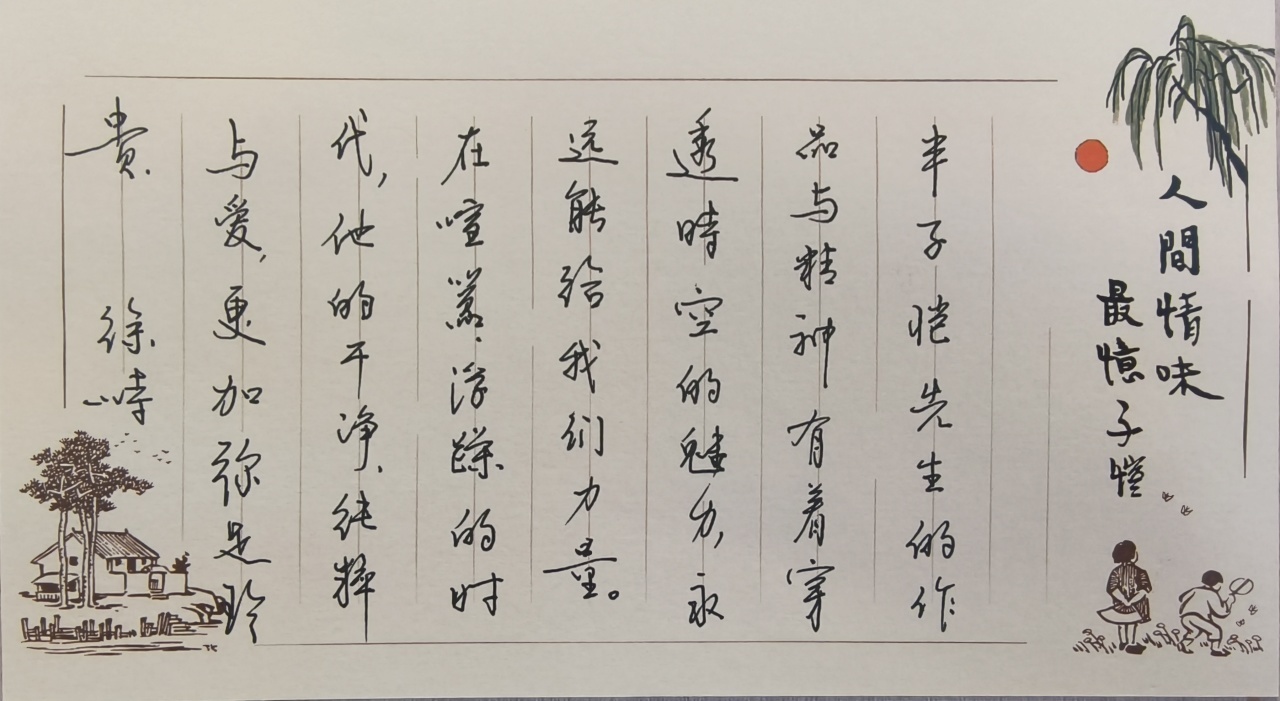 人間情味
最憶子愷
丰子恺先生的作
品与精神有着穿
透時空的魅力，永
远能给我们力量。
在喧嚣、浮躁的时
代，他的干净、纯粹
与爱，更加弥足珍
貴
徐
TK